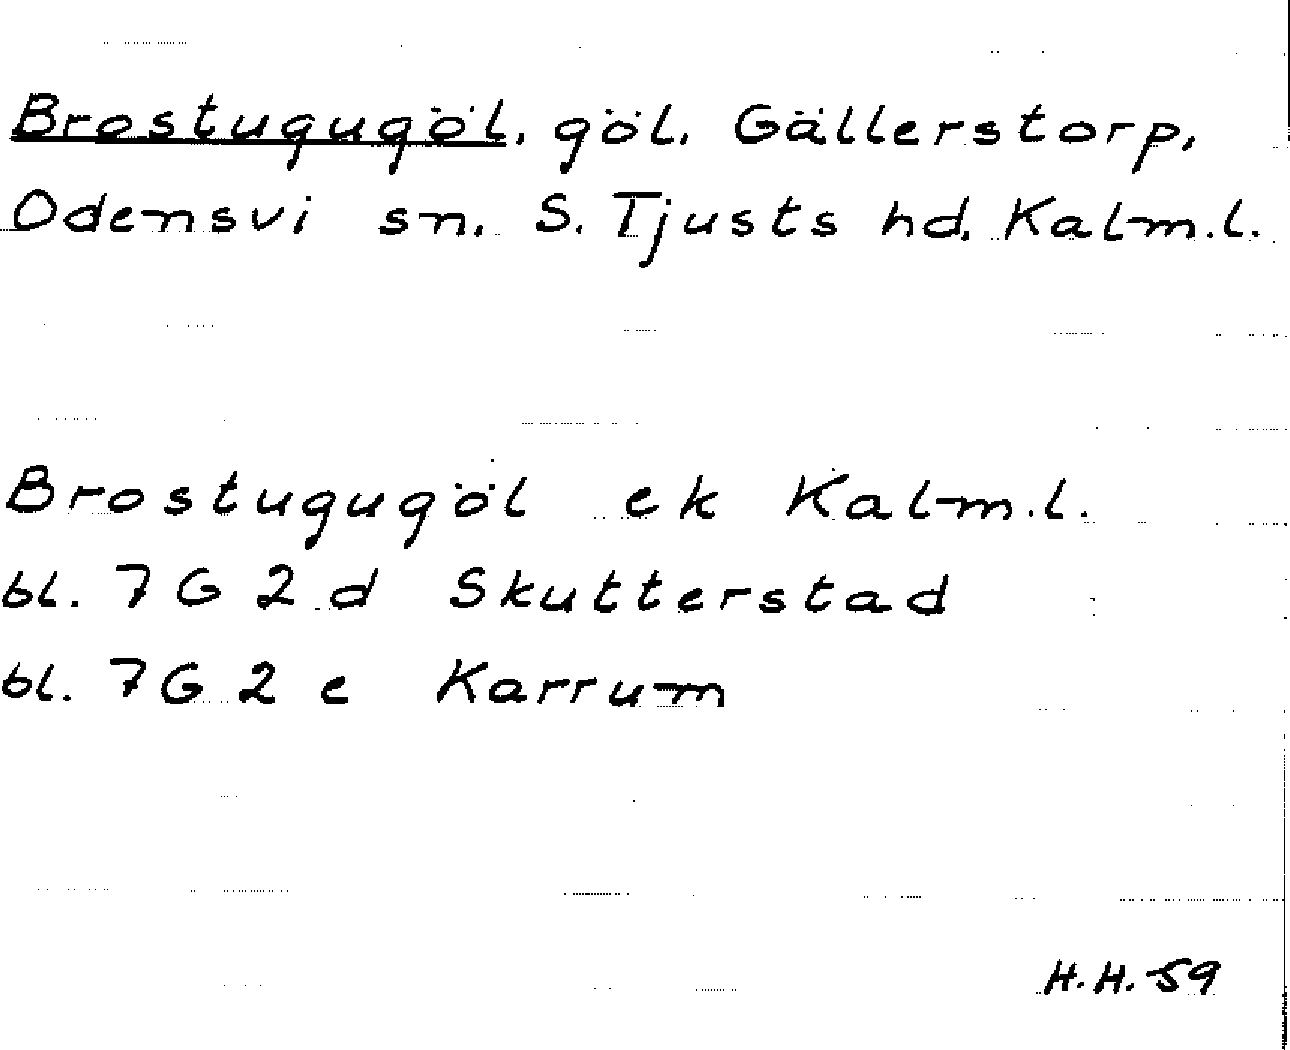 Brostugugöl, göl, Gällerstorp,
Odensvi sn, S. Tjusts hd, Kalm.l.
Brostugugöl ek Kalm.l.
bl. 7G 2 d Skutterstad
bl. 7G 2 e Karrum
H.H. 59